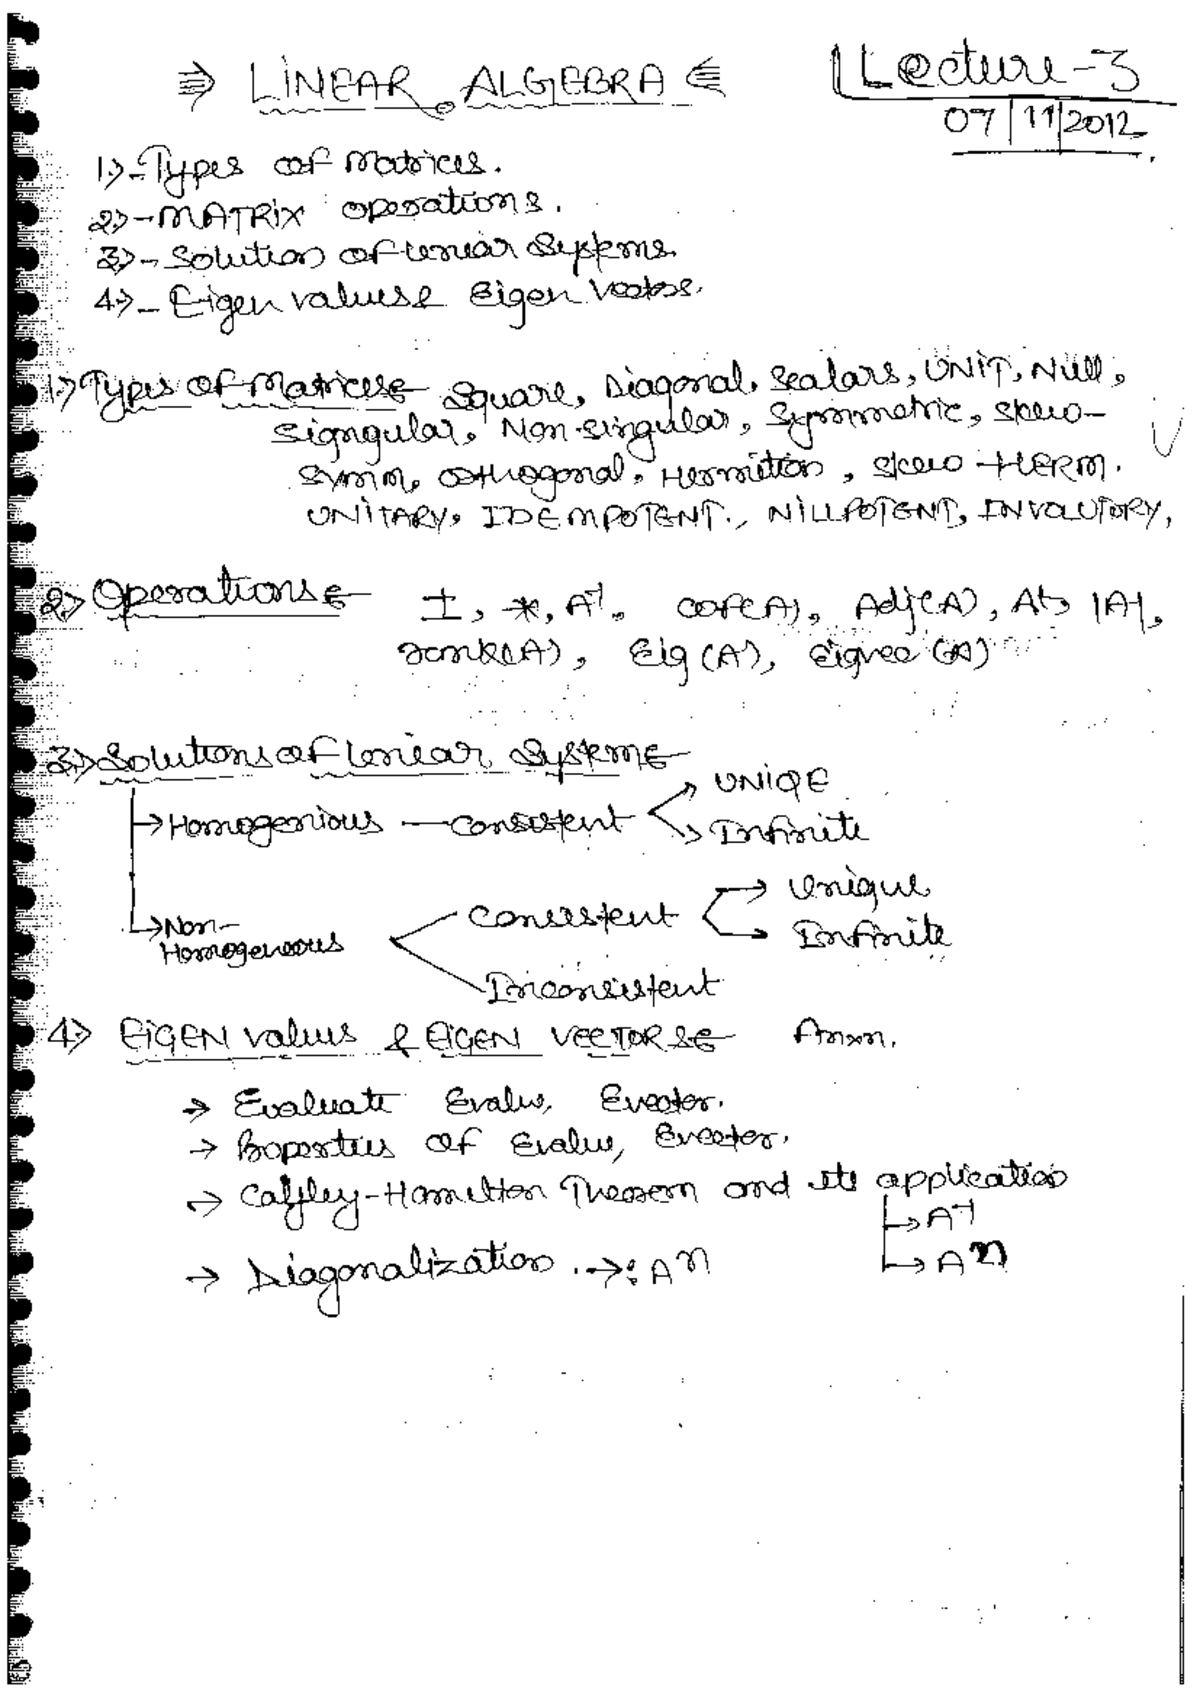 ⇛ LINEAR ALGEBRA ⋐ Lecture-3
07/11/2012
1.)-Types of Matrices.
2.)-MATRIX operations.
3.)-Solution of linear Systems.
4.)-Eigen values & Eigen Vectors.
1.) Types of Matrices:- Square, Diagonal, Scalars, UNIT, Null,
Signgular, Non-singular, Symmetric, skew-
symm, orthogonal, Hermition, skew-HERM.
UNITARY, IDEMPOTENT., NILLPOTENT, INVOLUTORY,
2.) Operations:- ±, *, A⁻¹, cof(A), Adj(A), Aᵗ, |A|,
rank(A), Eig(A), Eigvec(A)
3.) Solutions of linear Systems:-
→ UNIQE
→ Homogenious — Consistent
→ Infinite
→ Unique
→ Non-
Homogeneous
Consistent
→ Infinite
Inconsistent
4.) EIGEN values & EIGEN VECTORS:- Anxn.
→ Evaluate Evalue, Evector.
→ Properties of Evalue, Evector.
→ Cayley-Hamilton Theorem and its application
→ A⁻¹
→ Diagonalization .→: Aⁿ → Aⁿ